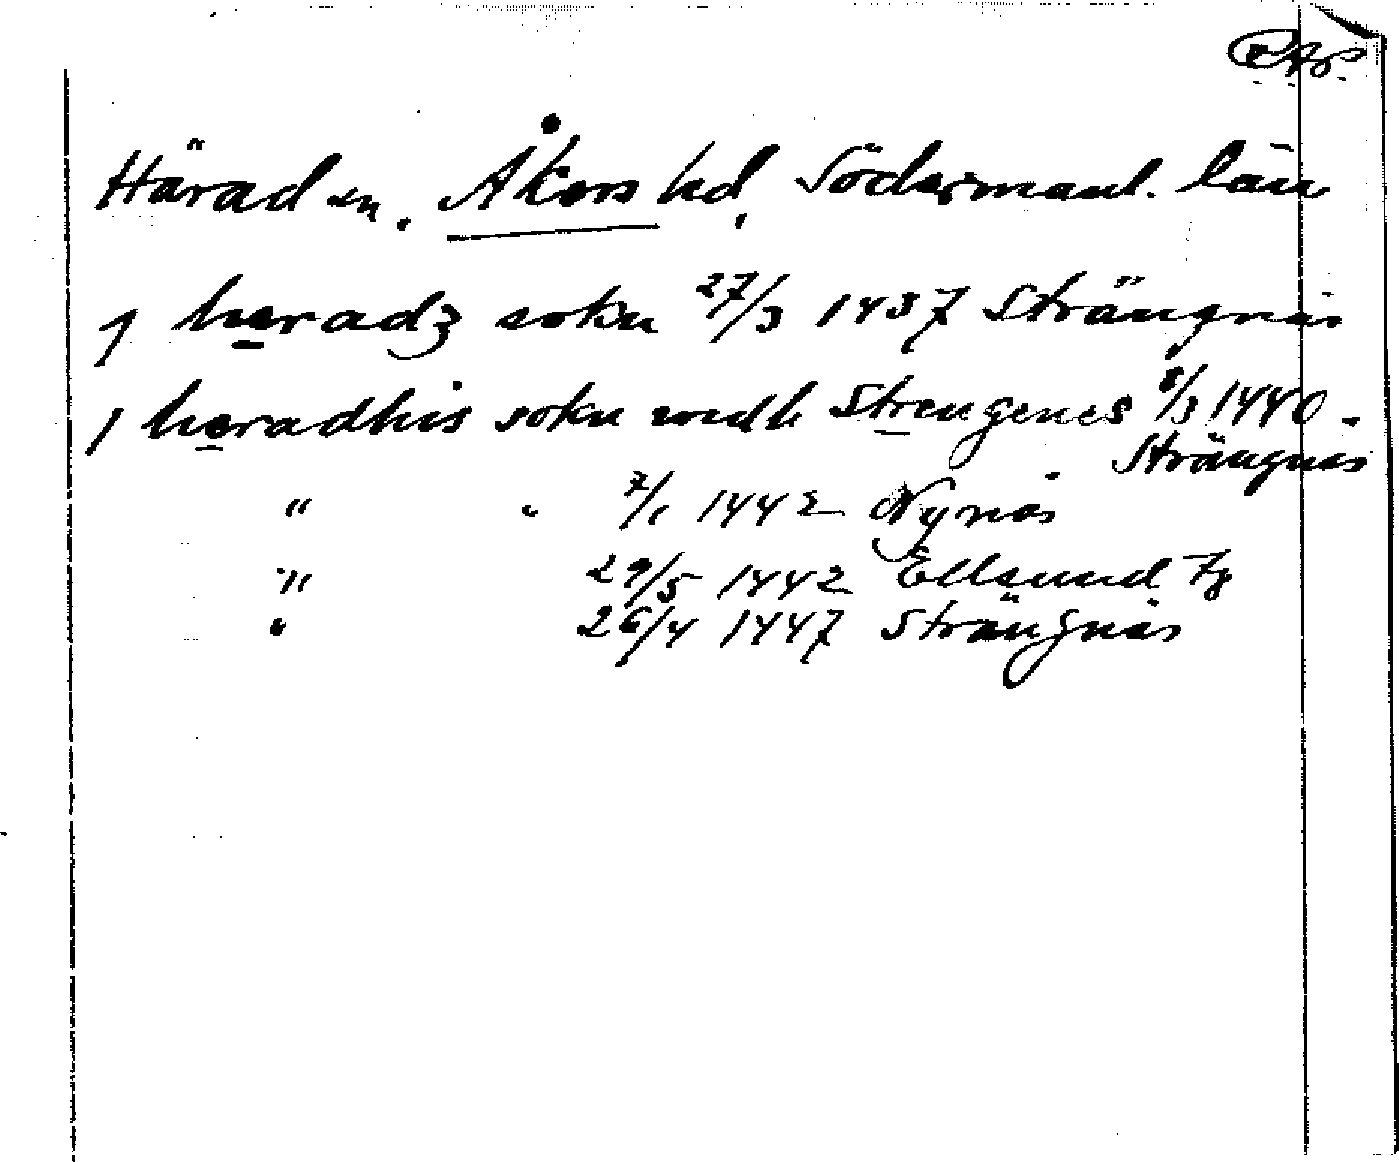 Härad sn. Åkers hd, Södermanl. län
J heradz sokn 27/3 1437 Strängnäs
J heradhis sokn widh Strengenes 8/3 1440.
Strängnäs
" " 7/1 1442 Nynäs
" 29/5 1442 Ellsund
" 26/4 1447 Strängnäs